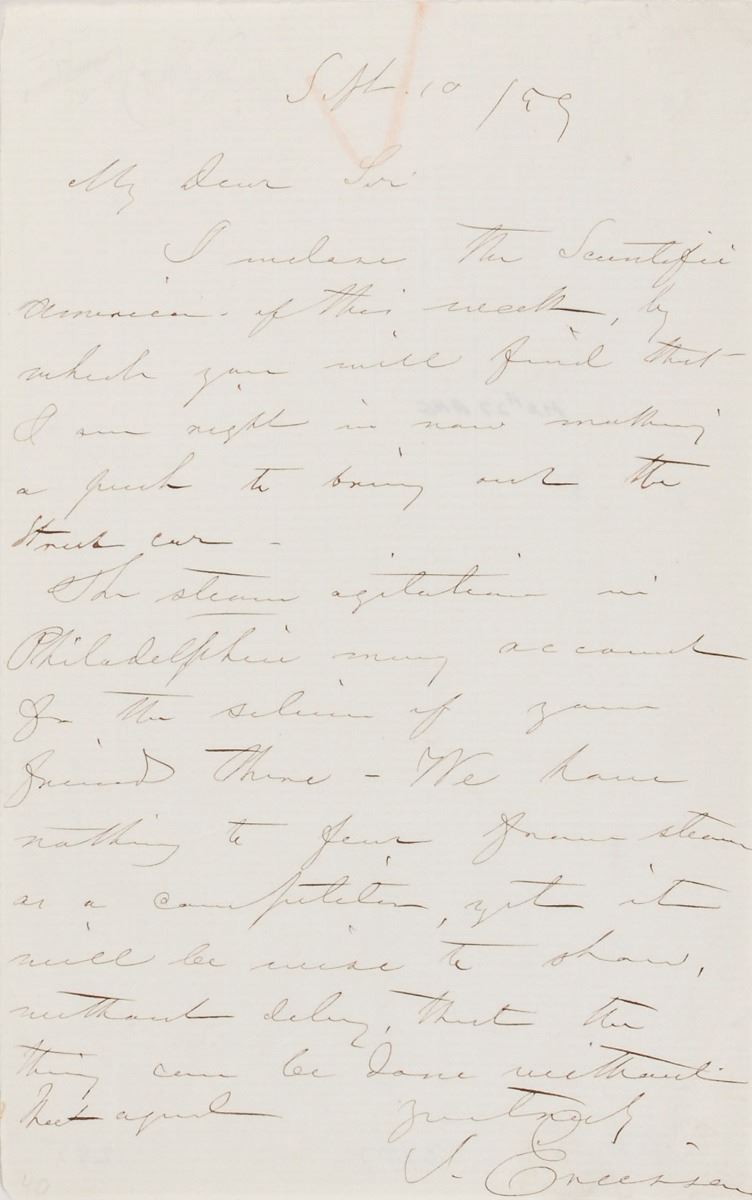 Sept. 10 /59
My Dear Sir
I inclose the Scientific
American of this week, by
which you will find that
I am right in now making
a push to bring out the
Street car -
The steam agitation in
Philadelphia may account
for the silence of your
friend there - We have
nothing to fear from steam
as a competitor, yet it
will be wise to show,
without delay, that the
thing can be done without
that agent
Yours truly
J. Ericsson